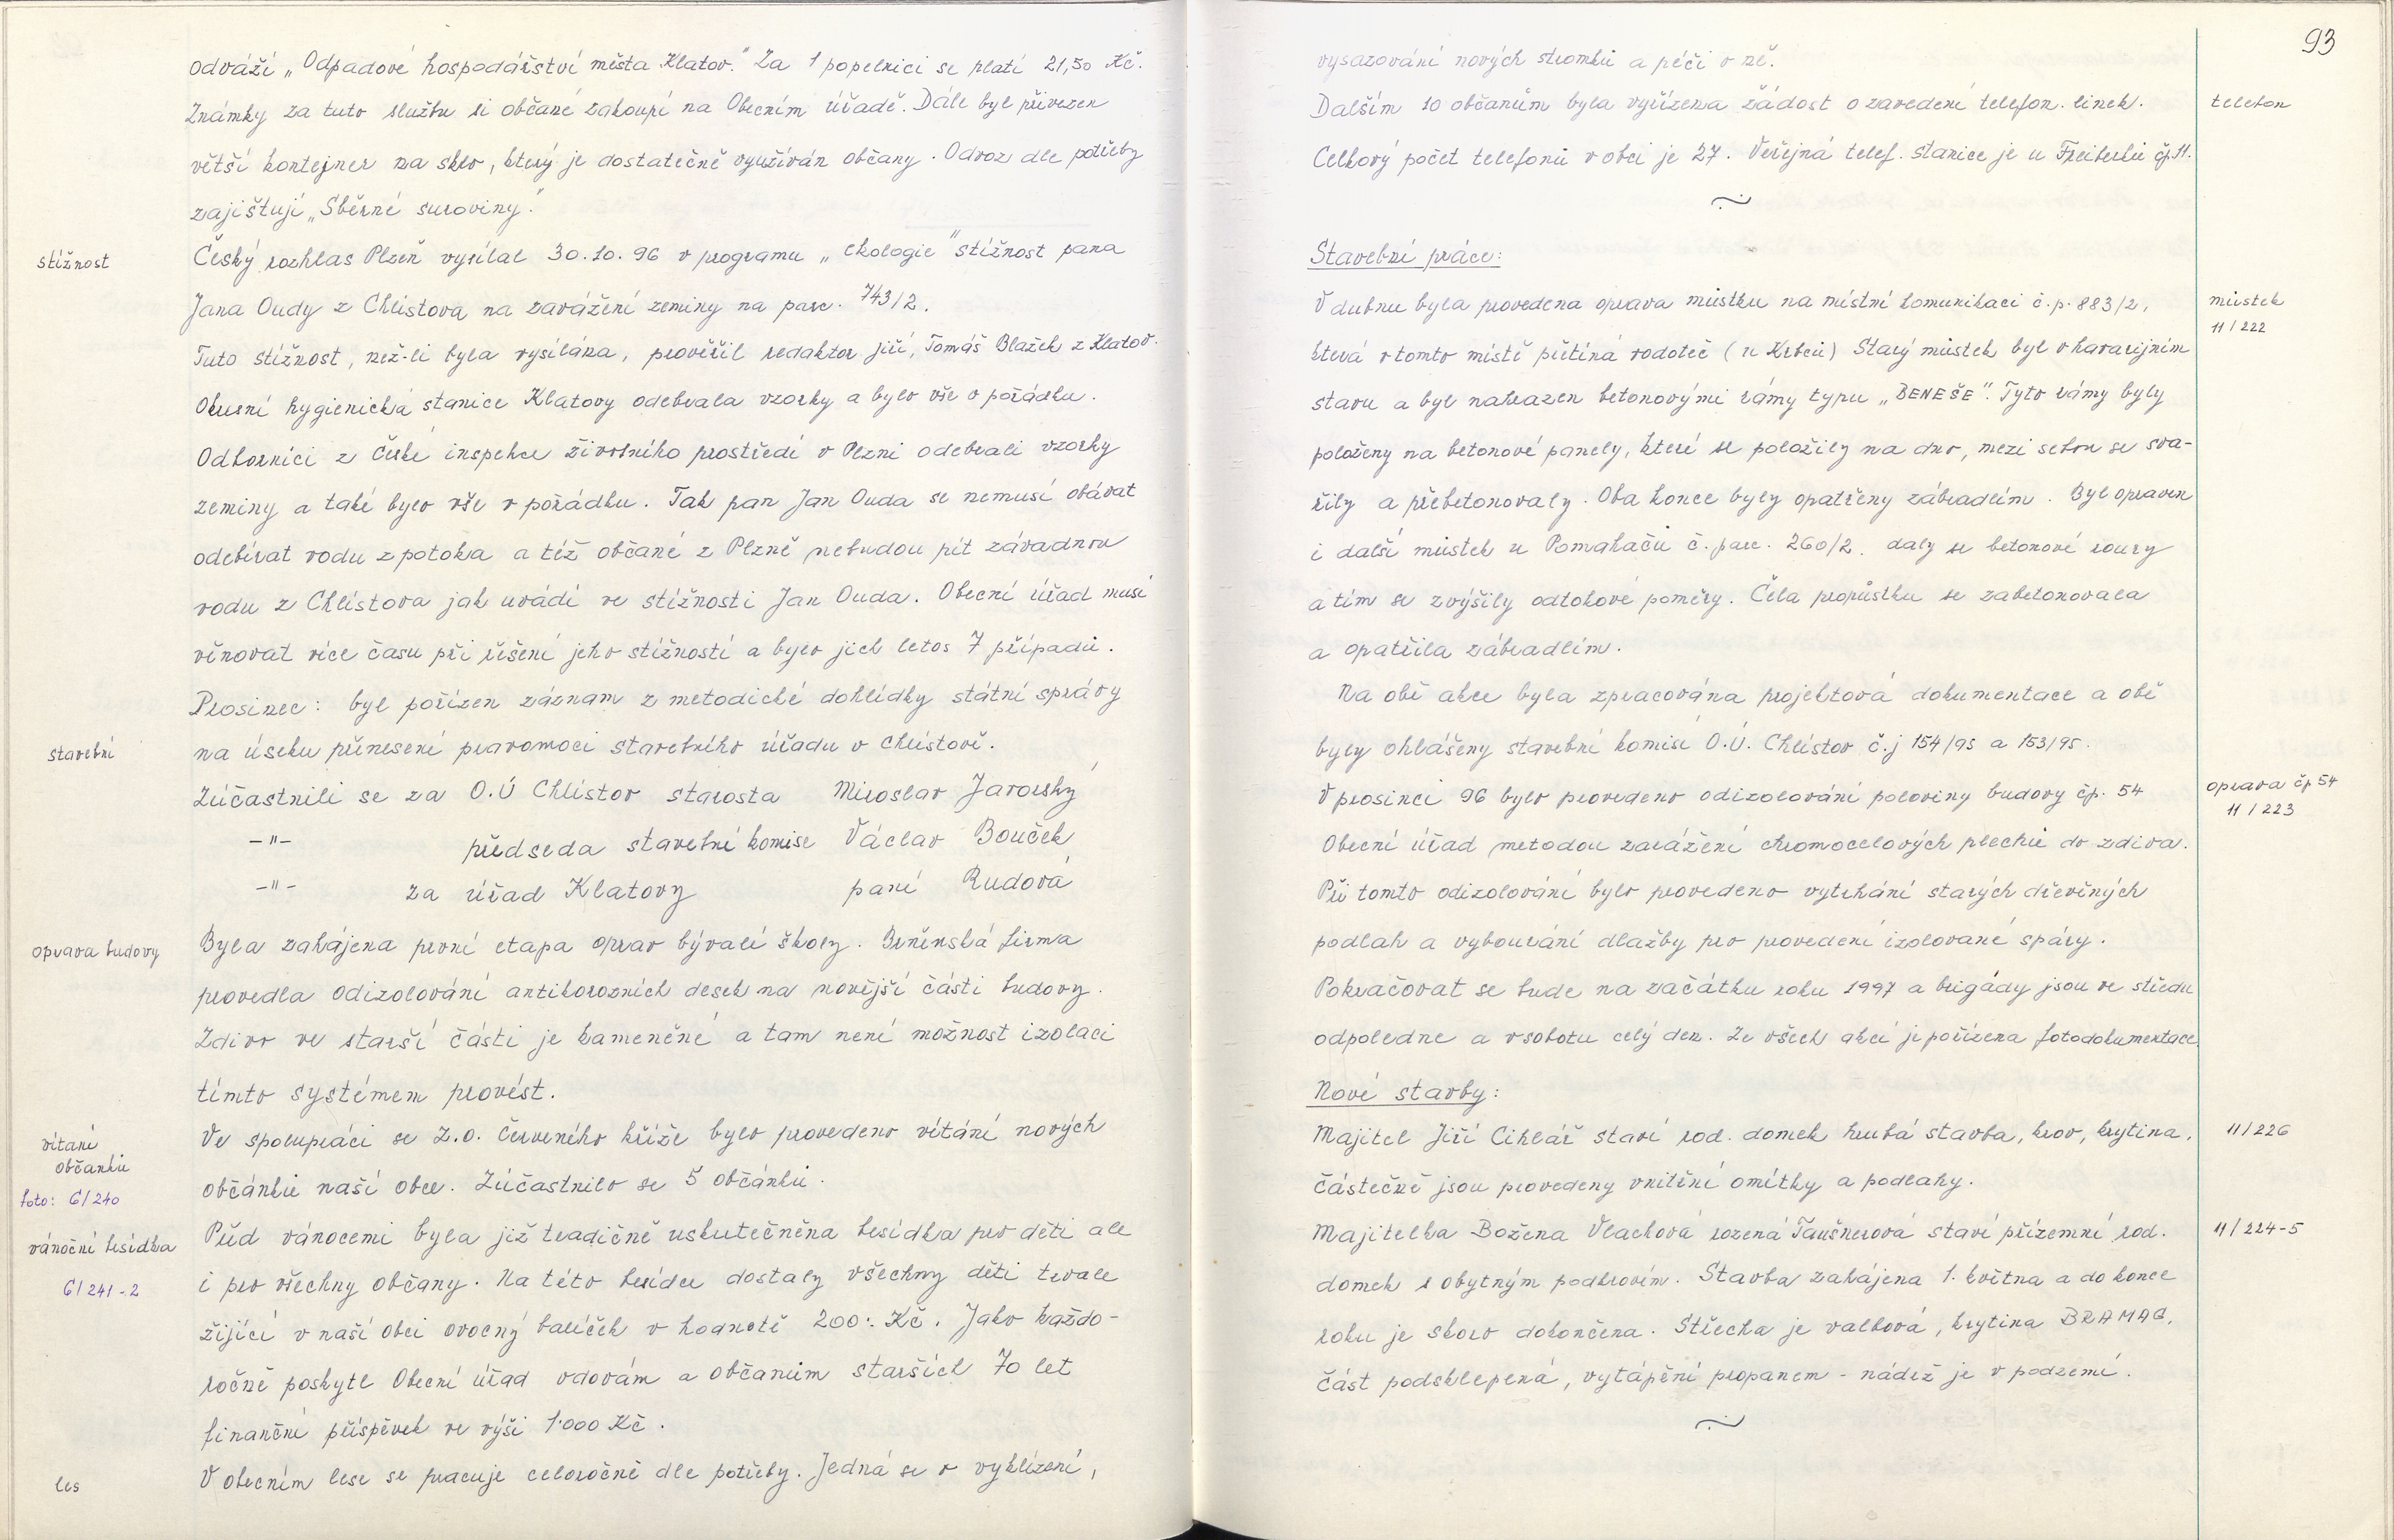 odváží „Odpadové hospodářství města Klatov." Za 1 popelnici se platí 21,50 Kč.
Známky za tuto službu si občané zakoupí na Obecním úřadě. Dále byl přivezen
větší kontejner na sklo, který je dostatečně využíván občany. Odvoz dle potřeby
zajištují „Sběrné suroviny."
stížnost
Český rozhlas Plzeň vysílal 30.10.96 v programu „ekologie" stížnost pana
Jana Oudy z Chlístova na zavážení zeminy na parc. 743/2.
Tuto stížnost, než-li byla vysílána, prověřil redaktor Jiří, Tomáš Blažek z Klatov.
Okresní hygienická stanice Klatovy odebrala vzorky a bylo vše v pořádku.
Odborníci z České inspekce životního prostředí v Plzni odebrali vzorky
zeminy a také bylo vše v pořádku. Tak pan Jan Ouda se nemusí obávat
odebírat vodu z potoka a též občané z Plzně nebudou pít závadnou
vodu z Chlístova jak uvádí ve stížnosti Jan Ouda. Obecní úřad musí
věnovat více času při řešení jeho stížností a bylo jich letos 7 případů.
Prosinec: byl pořízen záznam z metodické dohlídky státní správy
stavební
na úseku přenesení pravomoci stavebního úřadu v Chlístově.
Zúčastnili se za O.Ú Chlístov starosta Miroslav Javorský
-"- předseda stavební komise Václav Bouček
-"- za úřad Klatovy paní Rudová
oprava budovy
Byla zahájena první etapa oprav bývalé školy. Brněnská firma
provedla odizolování antikorozních desek na novější části budovy.
Zdivo ve starší části je kameněné a tam není možnost izolaci
tímto systémem provést.
vítání
občánků
foto: 6/240
Ve spolupráci se Z.O. Červeného kříže bylo provedeno vítání nových
občánků naší obce. Zúčastnilo se 5 občánků.
vánoční besídka
6/241-2
Před vánocemi byla již tradičně uskutečněna besídka pro děti ale
i pro všechny občany. Na této besídce dostaly všechny děti trvale
žijící v naší obci ovocný balíček v hodnotě 200:- Kč. Jako každo-
ročně poskytl Obecní úřad vdovám a občanům starších 70 let
finanční příspěvek ve výši 1.000 Kč.
les
V obecním lese se pracuje celoročně dle potřeby. Jedná se o vyklízení,
93
vysazování nových stromků a péči o ně.
Dalším 10 občanům byla vyřízena žádost o zavedení telefon. linek.
telefon
Celkový počet telefonů v obci je 27. Veřejná telef. stanice je u Freiberků čp 11.
Stavební práce:
V dubnu byla provedena oprava můstku na místní komunikaci č.p. 883/2,
můstek
11/222
která v tomto místě přetíná vodoteč (u Krbců) Starý můstek byl v havarijním
stavu a byl nahrazen betonovými rámy typu „BENEŠE". Tyto rámy byly
položeny na betonové panely, které se položily na dno, mezi sebou se sva-
řily a přebetonovaly. Oba konce byly opatřeny zábradlím. Byl opraven
i další můstek u Pomahačů č. parc. 260/2. daly se betonové roury
a tím se zvýšily odtokové poměry. Čela propůstku se zabetonovala
a opatřila zábradlím.
Na obě akce byla zpracována projektová dokumentace a obě
byly ohlášeny stavební komisi O.Ú. Chlístov č.j 154/95 a 153/95.
V prosinci 96 bylo provedeno odizolování poloviny budovy čp. 54
oprava čp 54
11/223
Obecní úřad metodou zarážení chromocelových plechů do zdiva.
Při tomto odizolování bylo provedeno vytrhání starých dřevěných
podlah a vybourání dlažby pro provedení izolované spáry.
Pokračovat se bude na začátku roku 1997 a brigády jsou ve středu
odpoledne a v sobotu celý den. Ze všech akcí je pořízena fotodokumentace
Nové stavby:
Majitel Jiří Cihlář staví rod. domek hrubá stavba, krov, krytina,
11/226
částečně jsou provedeny vnitřní omítky a podlahy.
Majitelka Božena Vlachová rozená Taušnerová staví přízemní rod.
11/224-5
domek s obytným podkrovím. Stavba zahájena 1. května a do konce
roku je skoro dokončena. Střecha je valbová, krytina BRAMAC,
část podsklepená, vytápění propanem - nádrž je v podzemí.